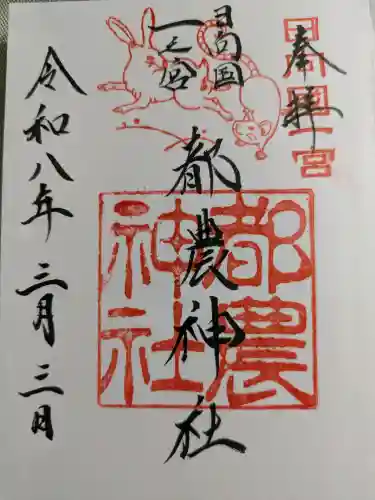 奉拝
日向国一宮
日向国
一之宮
都農神社
都農
神社
令和八年三月三日